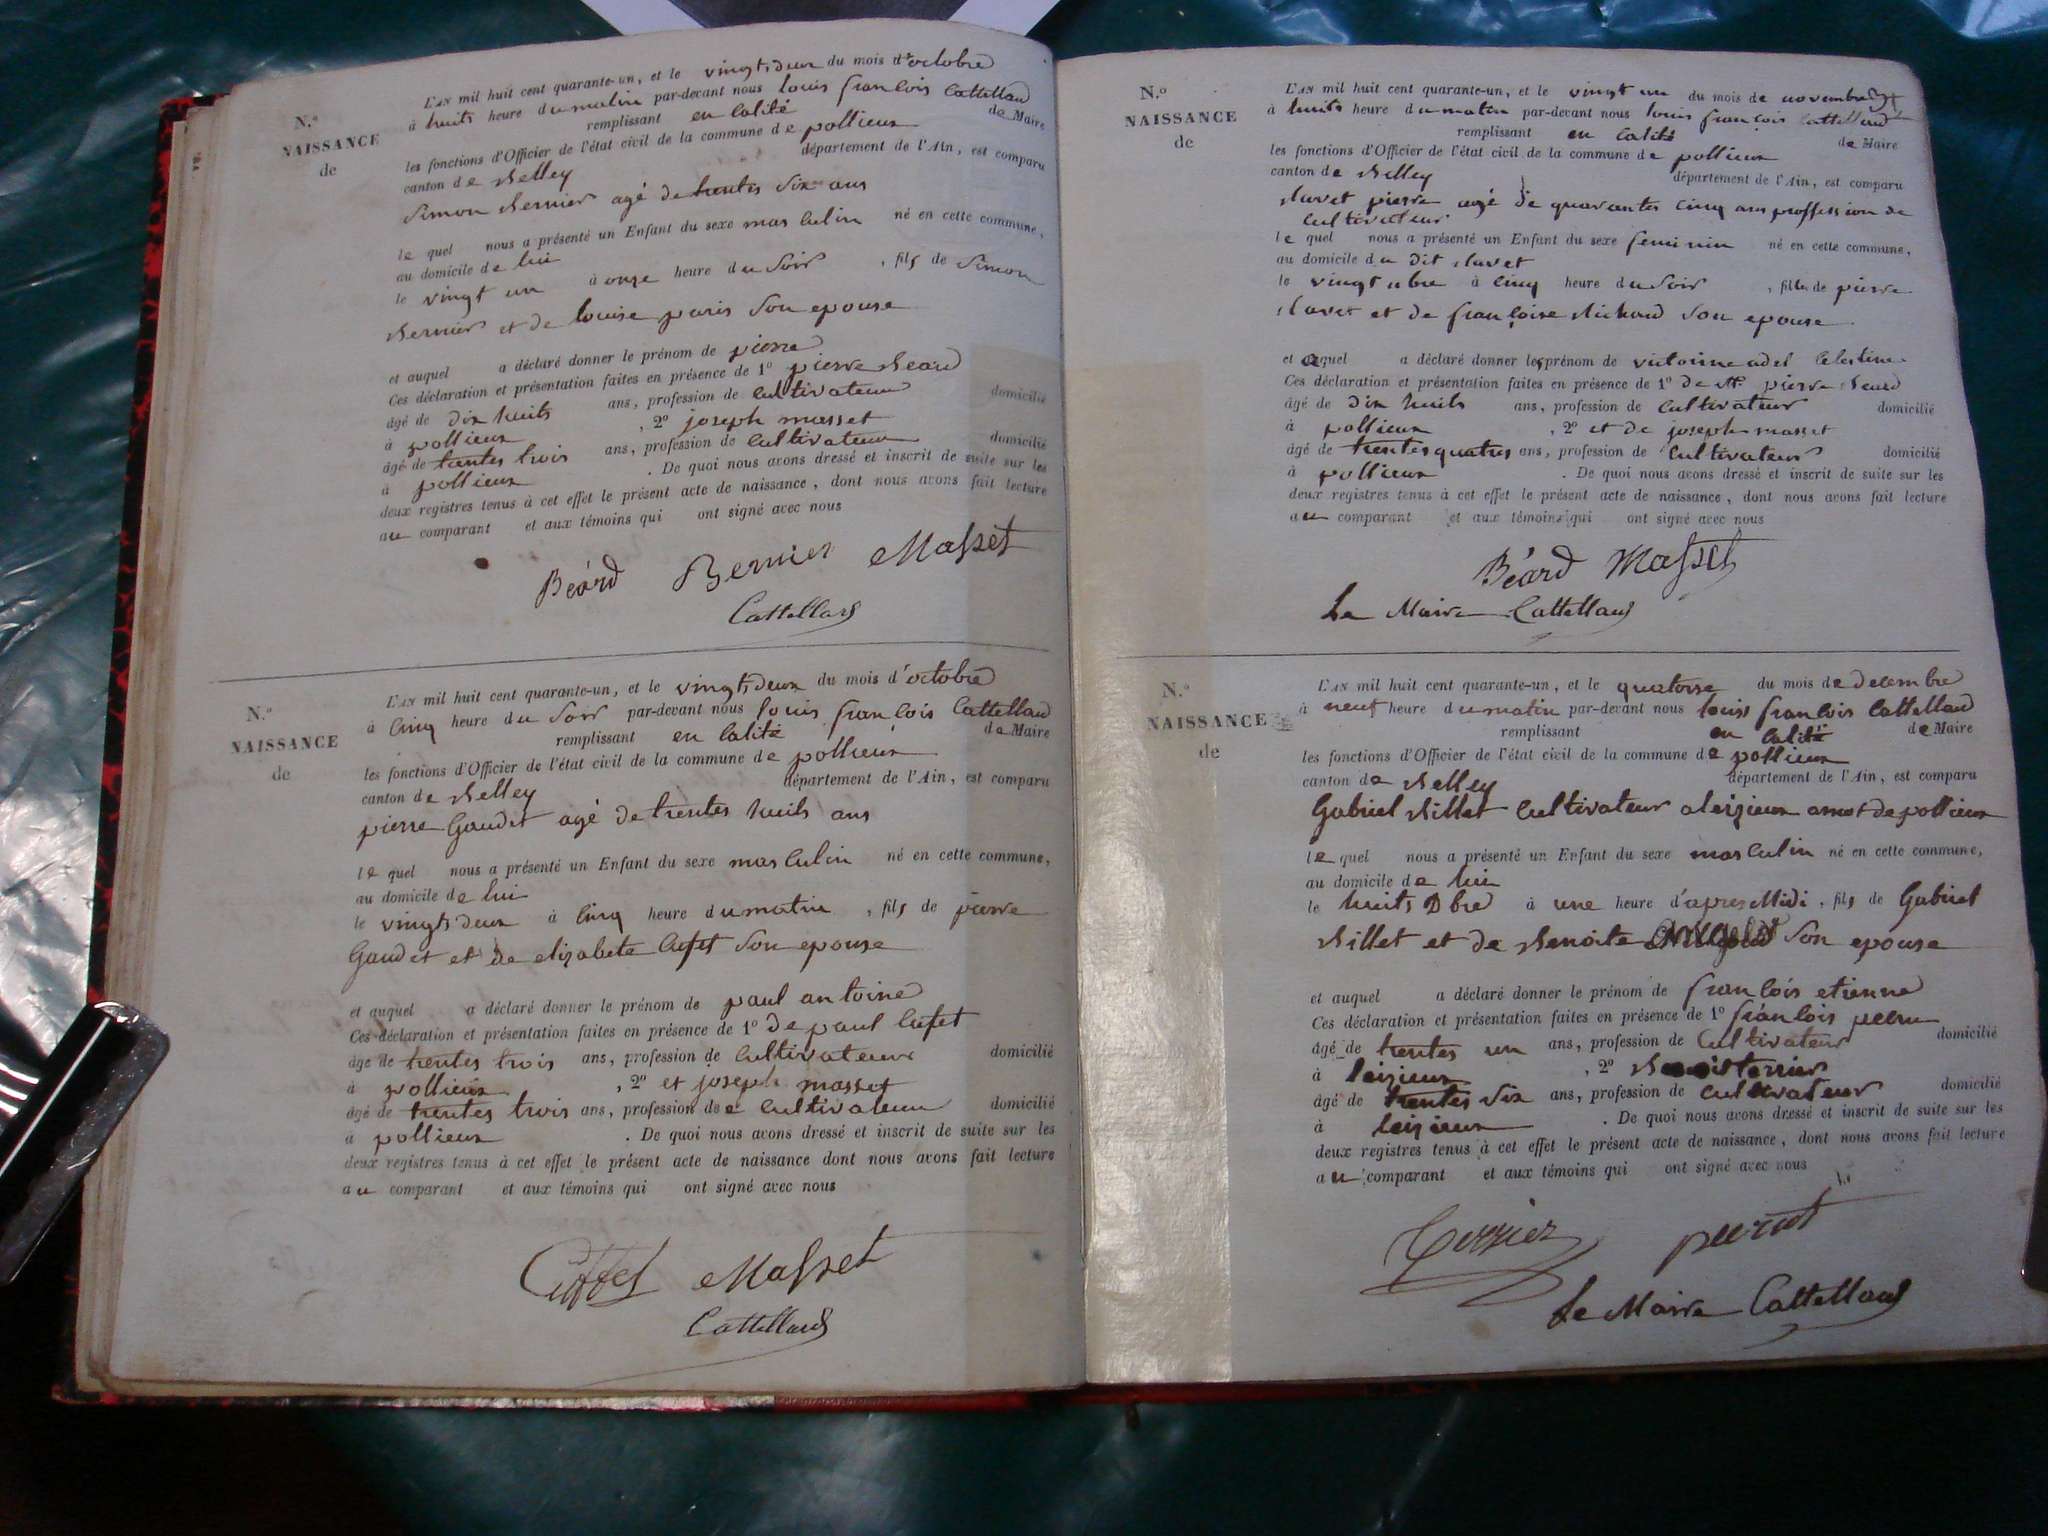 N.º
NAISSANCE
de
L'AN mil huit cent quarante-un, et le vingtsdeux du mois d'octobre
à huits heure du matin par-devant nous louis francois Cattelland
remplissant en calité de Maire
les fonctions d'Officier de l'état civil de la commune de pollieux
canton de Belley département de l'Ain, est comparu
simon Bernier agé de trentes six ans
le quel nous a présenté un Enfant du sexe masculin né en cette commune,
au domicile de lui
le vingt un à onze heure du soir, fils de simon
Bernier et de louise paris son epouse
et auquel a déclaré donner le prénom de pierre
Ces déclaration et présentation faites en présence de 1º pierre Beard
âgé de dix huits ans, profession de cultivateur domicilié
à pollieux, 2º joseph masset
âgé de trentes trois ans, profession de cultivateur domicilié
à pollieux. De quoi nous avons dressé et inscrit de suite sur les
deux registres tenus à cet effet le présent acte de naissance, dont nous avons fait lecture
au comparant et aux témoins qui ont signé avec nous
Béard Bernier Masset
Cattelland
N.º
NAISSANCE
de
L'AN mil huit cent quarante-un, et le vingtsdeux du mois d'octobre
à cinq heure du soir par-devant nous louis francois Cattelland
remplissant en calité de Maire
les fonctions d'Officier de l'état civil de la commune de pollieux
canton de Belley département de l'Ain, est comparu
pierre Gaudet agé de trentes huits ans
le quel nous a présenté un Enfant du sexe masculin né en cette commune,
au domicile de lui
le vingtsdeux à cinq heure du matin, fils de pierre
Gaudet et de elizabete Cufet son epouse
et auquel a déclaré donner le prénom de paul antoine
Ces déclaration et présentation faites en présence de 1º de paul Cufet
âgé de trentes trois ans, profession de cultivateur domicilié
à pollieux, 2º et joseph masset
âgé de trentes trois ans, profession de cultivateur domicilié
à pollieux. De quoi nous avons dressé et inscrit de suite sur les
deux registres tenus à cet effet le présent acte de naissance dont nous avons fait lecture
au comparant et aux témoins qui ont signé avec nous
Masset
Cattelland
N.º
NAISSANCE
de
L'AN mil huit cent quarante-un, et le vingt un du mois de novembre
à huits heure du matin par-devant nous louis françois Cattelland
remplissant en calité de Maire
les fonctions d'Officier de l'état civil de la commune de pollieux
canton de Belley département de l'Ain, est comparu
pierre agé de quarantes cinq ans proffession de
cultivateur
le quel nous a présenté un Enfant du sexe feminin né en cette commune,
au domicile du dit
le vingt à cinq heure du soir, fille de pierre
et de françoise son epouse
et aquel a déclaré donner les prénom de victorine adel celestine
Ces déclaration et présentation faites en présence de 1º de Mr pierre Beard
âgé de dix huits ans, profession de cultivateur domicilié
à pollieux, 2º et de joseph masset
âgé de trentes quatres ans, profession de cultivateur domicilié
à pollieux. De quoi nous avons dressé et inscrit de suite sur les
deux registres tenus à cet effet le présent acte de naissance, dont nous avons fait lecture
au comparant et aux témoins qui ont signé avec nous
Béard Masset
Le Maire Cattelland
N.º
NAISSANCE
de
L'AN mil huit cent quarante-un, et le quatorse du mois de decembre
à neuf heure du matin par-devant nous louis francois Cattelland
remplissant en calité de Maire
les fonctions d'Officier de l'état civil de la commune de pollieux
canton de Belley département de l'Ain, est comparu
Gabriel Billet cultivateur a leizieux de pollieux
le quel nous a présenté un Enfant du sexe masculin né en cette commune,
au domicile de lui
le huits Dbre à une heure d'apres Midi, fils de Gabriel
Billet et de Benoite son epouse
et auquel a déclaré donner le prénom de francois etienne
Ces déclaration et présentation faites en présence de 1º françois
âgé de trentes un ans, profession de cultivateur domicilié
à leizieux, 2º terrier
âgé de trentes six ans, profession de cultivateur domicilié
à leizieux. De quoi nous avons dressé et inscrit de suite sur les
deux registres tenus à cet effet le présent acte de naissance, dont nous avons fait lecture
au comparant et aux témoins qui ont signé avec nous
Terrier
Le Maire Cattelland